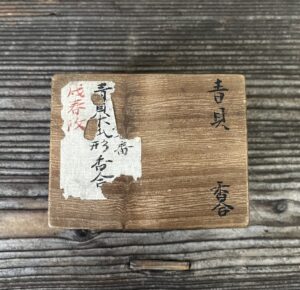 青貝
香合
番
青貝形香合
戌春改